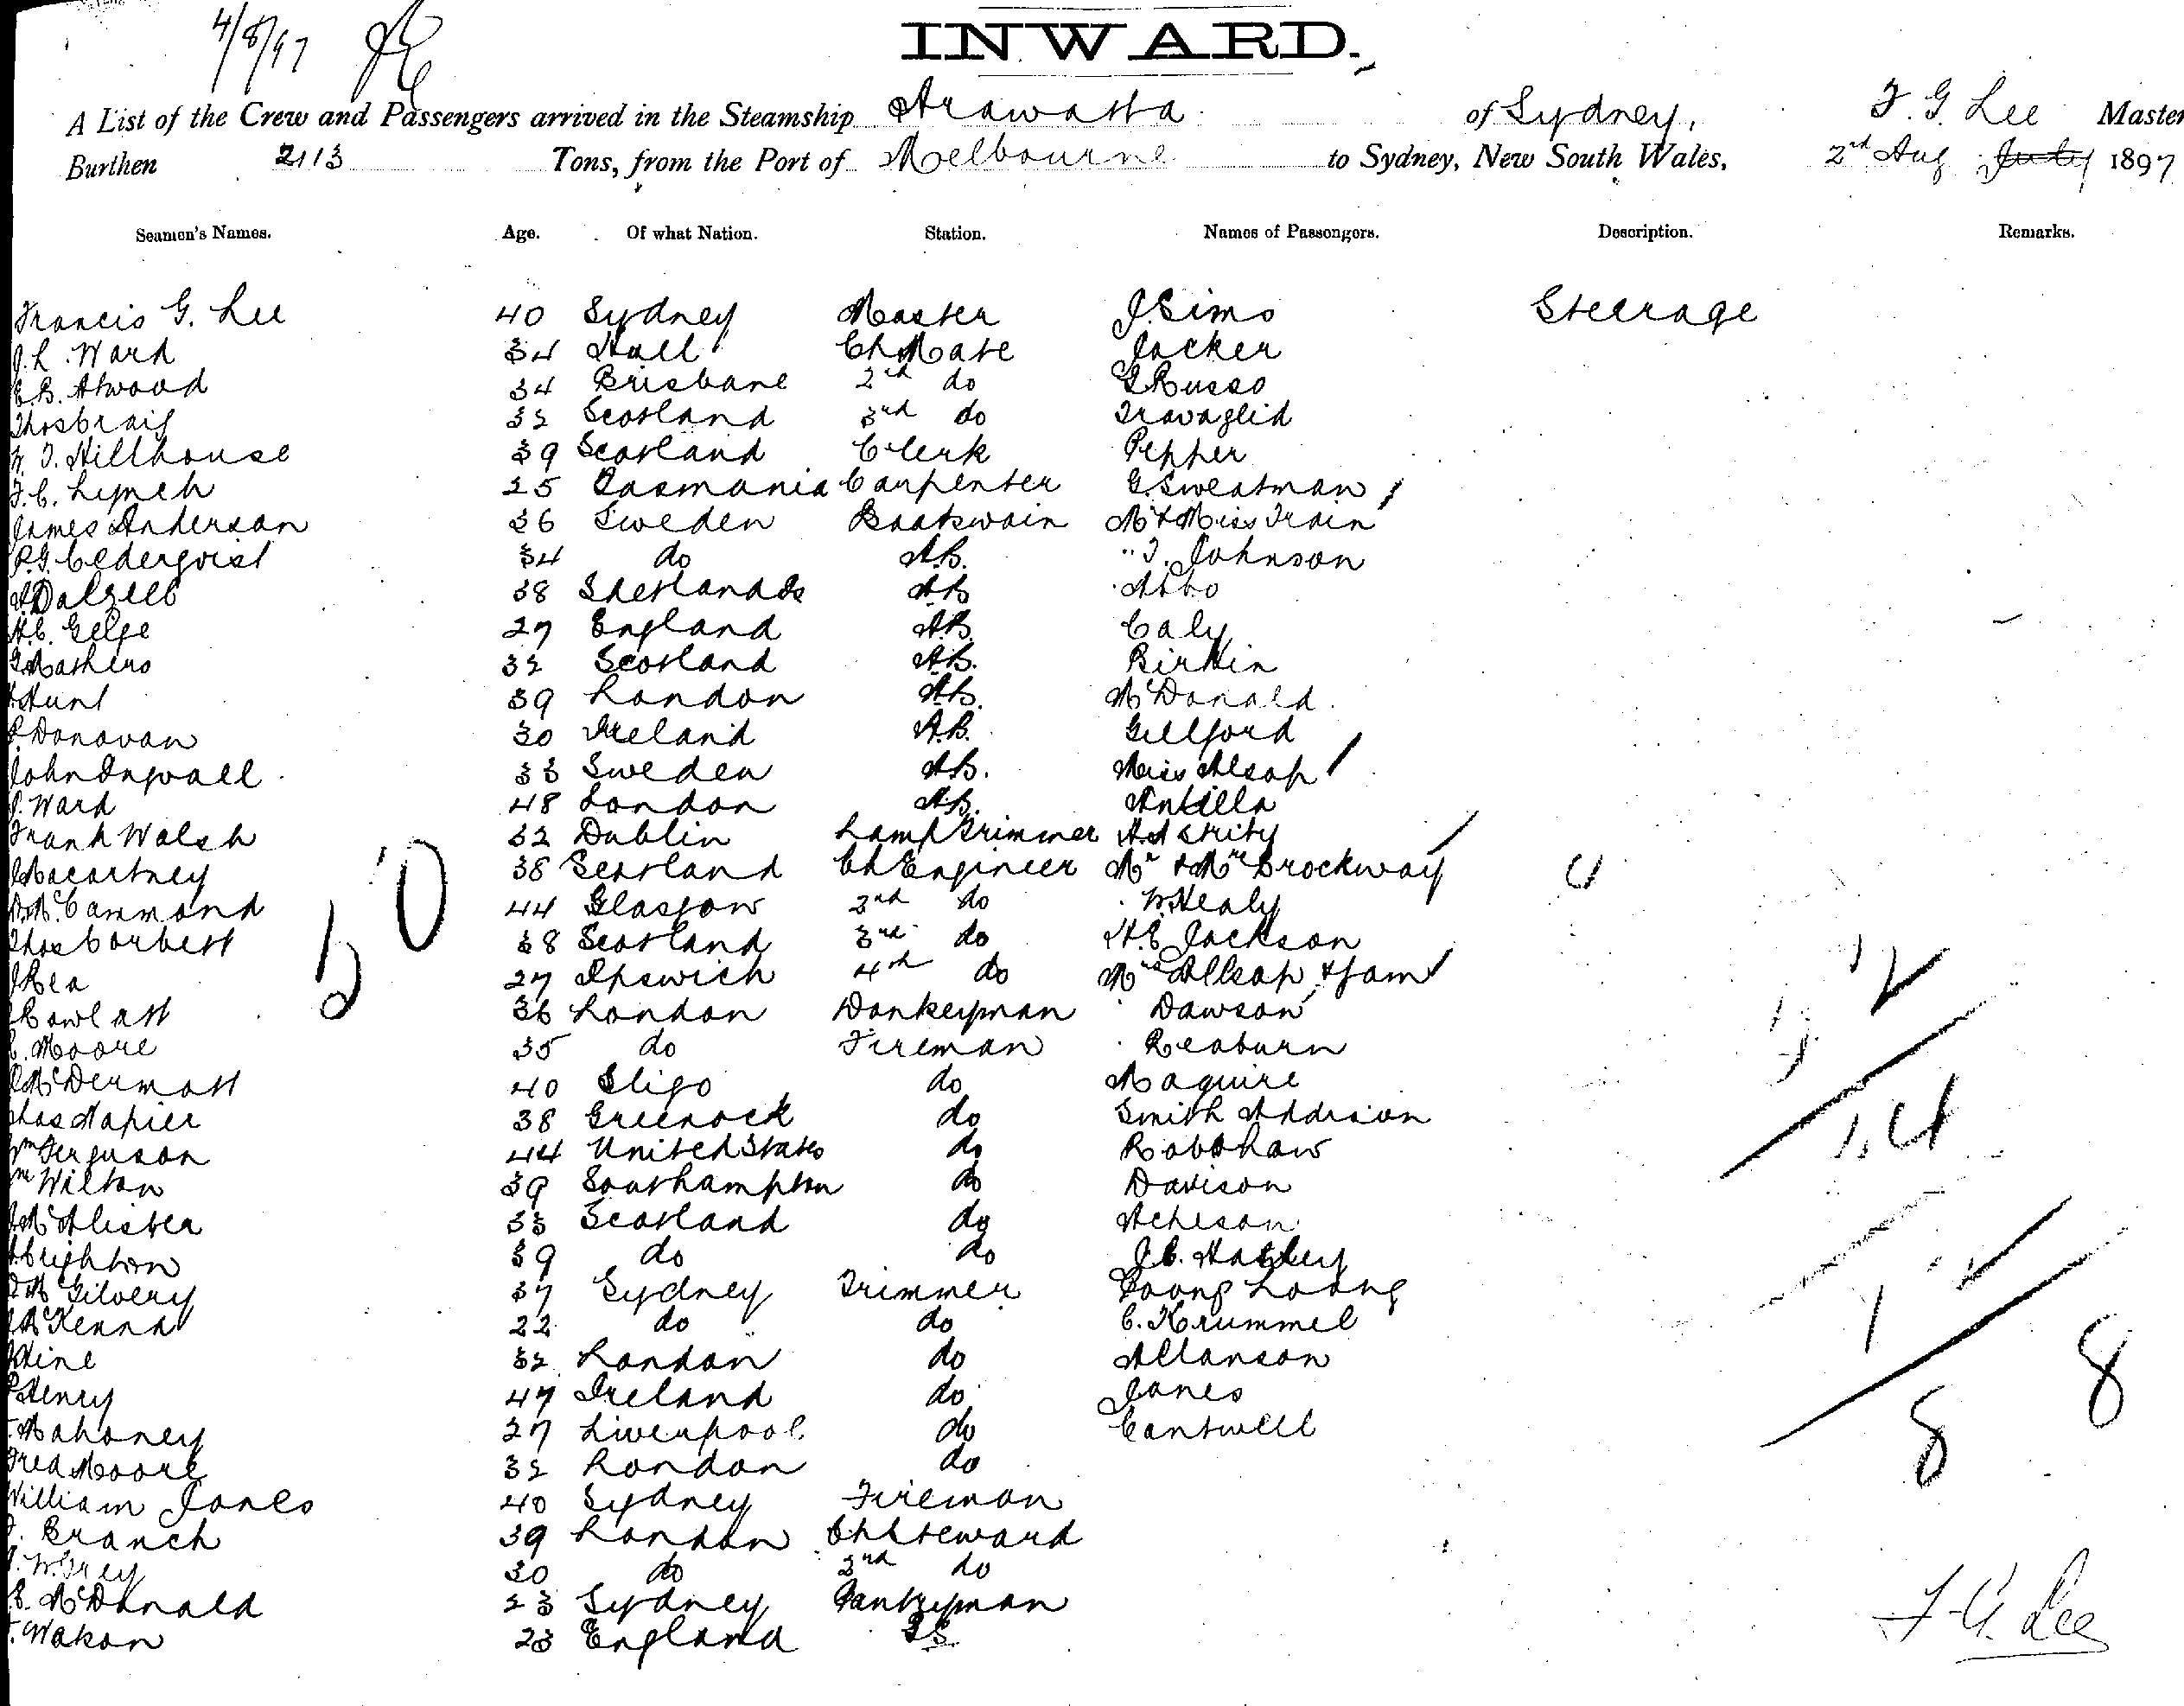 4/8/97
INWARD.
A List of the Crew and Passengers arrived in the Steamship Arawatta of Sydney, F. G. Lee Master
Burthen 2113 Tons, from the Port of Melbourne to Sydney, New South Wales, 2nd Aug July 1897
Seamen's Names. Age. Of what Nation. Station. Names of Passengers. Description. Remarks.
Francis G. Lee 40 Sydney Master J. Sims Steerage
J. L. Ward 34 Hull Ch Mate Jocker
E. B. Atwood 34 Brisbane 2nd do G Russo
Thos Craig 32 Scotland 3rd do Travaglid
W. J. Hillhouse 39 Scotland Clerk Pepper
F. C. Lynch 25 Tasmania Carpenter G. Sweatman
James Anderson 36 Sweden Boatswain Mr & Miss Train
P. G. Cederqvist 34 do A.B. " T. Johnson
Dalzell 38 Shetland Is AB Abbo
H. C. Gelge 27 England A.B. Caly
G Mathers 32 Scotland A.B. Birkin
Hunt 39 London A.B. McDonald
Donovan 30 Ireland A.B. Gullford
John Ingvall 33 Sweden A.B. Miss Alsop
J. Ward 48 London A.B. Antilla
Frank Walsh 32 Dublin Lamp Trimmer
Macartney 38 Scotland Ch Engineer Mr & Mrs Brockway
McCammond 44 Glasgow 2nd do W. Healy
Thos Corbett 38 Scotland 3rd do H. E Jackson
J Rea 27 Ipswich 4th do Mrs Allsop & fam
Cowlatt 36 London Donkeyman Dawson
Moore 35 do Fireman Reaburn
McDermott 40 Sligo do Maguire
Chas Napier 38 Greenock do Smith Addison
Wm Ferguson 44 United States do Robshaw
Wm Wilton 39 Southampton do Davison
McAlister 33 Scotland do Acheson
Creighton 39 do do J. C. Hatley
McGilvery 37 Sydney Trimmer Loong
McKenna 22 do do C. Krummel
Hine 32 London do Allanson
Henry 47 Ireland do Jones
Mahoney 27 Liverpool do Cantwell
Fred Moore 32 London do
William Jones 40 Sydney Fireman
Branch 39 London Ch Steward
W. Grey 30 do 2nd do
McDonald 23 Sydney Pantryman
Watson 23 England
50
12
14
8
8
F. G. Lee